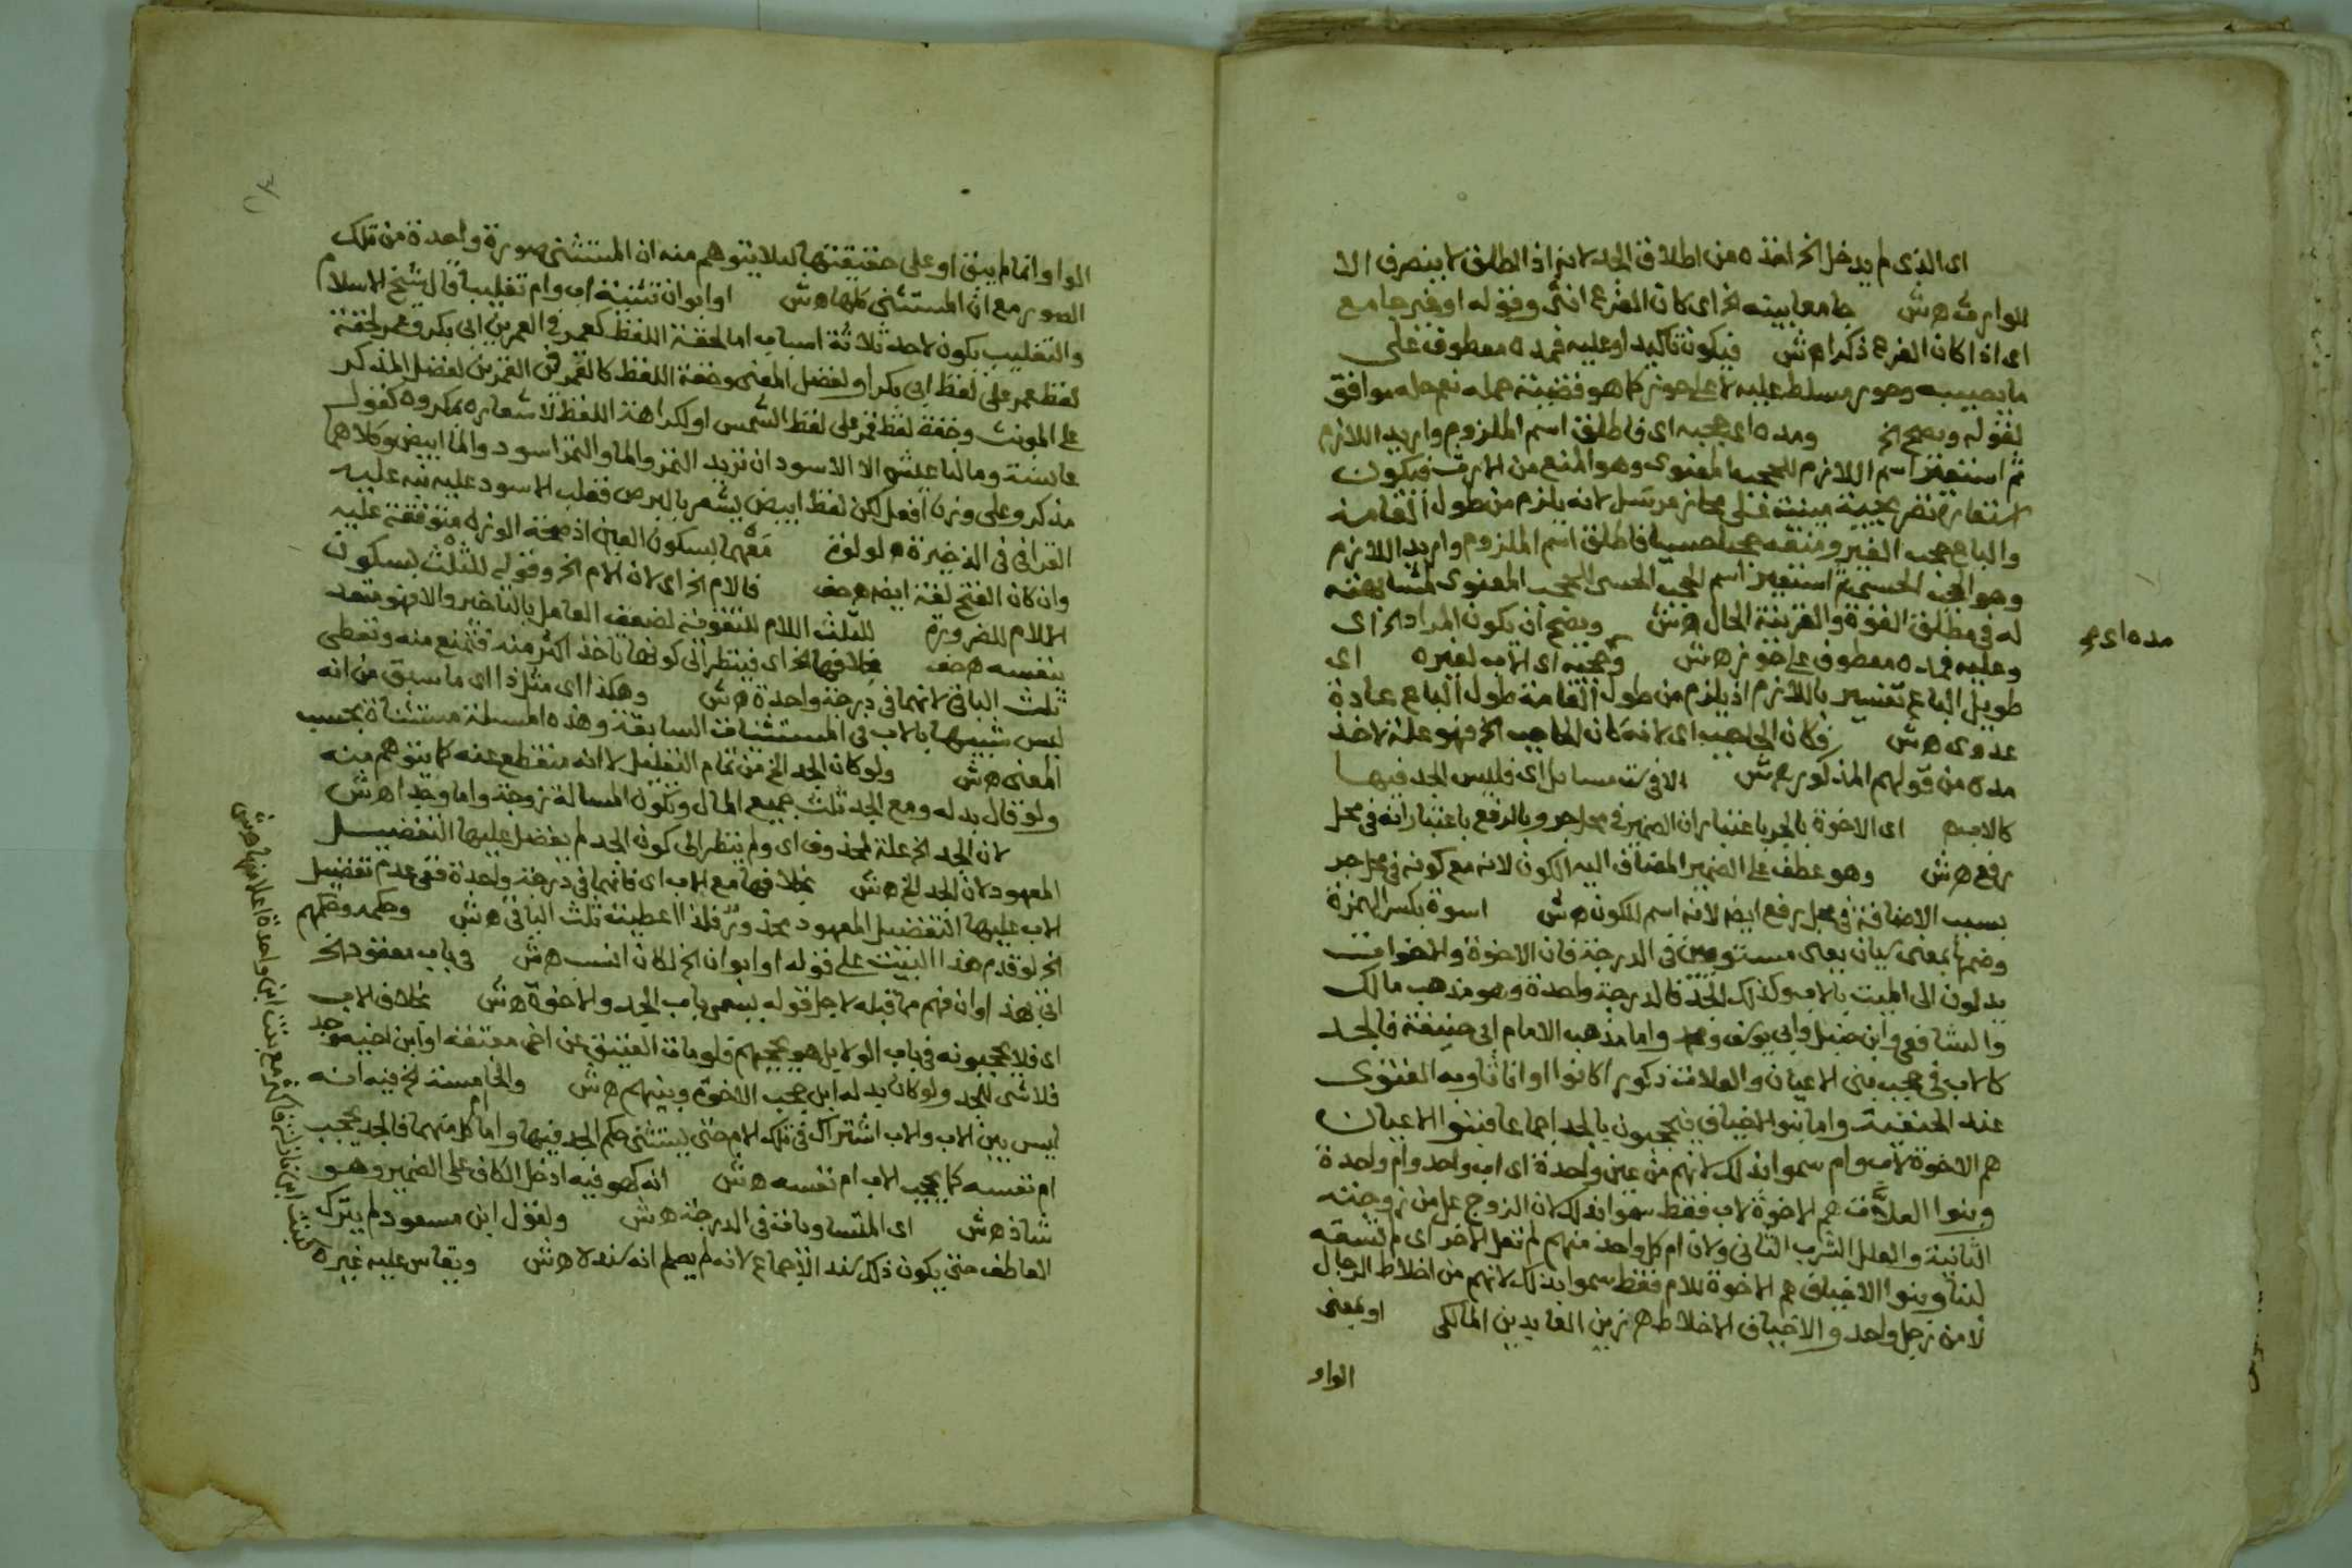 اى الذى لم يدخل الخ اخذه من اطلاق الجد لانه اذا اطلق لا ينصرف الا
للوارث ه ش جامعا بينه الخ اى كان الفرع انثى وقوله او غير جامع
اى اذا كان الفرع ذكرا ه ش فيكون تاكيد او عليه فمده معطوف على
ما يصيبه وحوز مسلط عليه لا على حوز كما هو قضيته حمله نعم حله موافق
لقوله ويصح الخ ومده اى حجبه اى فاطلق اسم الملزوم واريد اللازم
ثم استعير اسم اللازم للحجب المعنوى وهو المنع من الارث فيكون
استعارة تصريحية مبنية على مجاز مرسل لانه يلزم من طول القامة
والباع حجب الغير ومنعه حجبا حسيا فاطلق اسم الملزوم واريد اللازم
وهو الحجب الحسى ثم استعير اسم الحجب الحسى للحجب المعنوى لمشابهته
له فى مطلق القوة والقرينة الحال ه ش ويصح ان يكون المراد الخ اى
وعليه فمده معطوف على حوز ه ش وحجبه اى الاب لغيره اى
طويل الباع تفسير باللازم اذ يلزم من طول القامة طول الباع عادة
عدوى ه ش فكان الحاجب اى لانه كان الحاجب الخ فهو علة لاخذ
مده من قولهم المذكور ه ش الا فى ست مسايل اى فليس الجد فيها
كالاب ه اى الاخوة بالجر باعتبار ان الضمير فى محل جر وبالرفع باعتبار انه فى محل
رفع ه ش وهو عطف على الضمير المضاف اليه الكون لانه مع كونه فى محل جر
بسبب الاضافة فى محل رفع ايضا لانه اسم للكون ه ش اسوة بكسر الهمزة
وضمها بمعنى سيان يعنى مستويين فى الدرجة فان الاخوة والاخوات
يدلون الى الميت بالاب وكذلك الجد فالدرجة واحدة وهو مذهب مالك
والشافعى وابن حنبل وابى يوسف ومحمد واما مذهب الامام ابى حنيفة فالجد
كالاب فى حجب بنى الاعيان والعلات ذكورا كانوا او اناثا وبه الفتوى
عند الحنفية واما بنو الاخياف فيحجبون بالجد اجماعا فبنو الاعيان
هم الاخوة لاب وام سموا بذلك لانهم من عين واحدة اى اب واحد وام واحدة
وبنوا العلات هم الاخوة لاب فقط سموا بذلك لان الزوج عل من زوجته
الثانية والعلل الشرب الثانى ولان ام كل واحد منهم لم تعل الاخر اى لم تسقه
لبنا وبنوا الاخياف هم الاخوة للام فقط سموا بذلك لانهم من اخلاط الرجال
لا من رجل واحد والاخياف الاخلاط ه زين العابدين المالكى او بمعنى
الواو
مده اى
الواو انما لم يبق او على حقيقتها لئلا يتوهم منه ان المستثنى صورة واحدة من تلك
الصور مع ان المستثنى كلها ه ش او ابوان تثنية اب وام تغليبا قال شيخ الاسلام
والتغليب يكون لاحد ثلاثة اسباب اما لخفة اللفظ كعمر فى العمرين ابى بكر وعمر لخفة
لفظ عمر على لفظ ابى بكر او لفضل المعنى وخفة اللفظ كالقمر فى القمرين لفضل المذكر
على المونث وخفة لفظ قمر على لفظ الشمس او لكراهة اللفظ لاشعاره بمكروه كقول
عايشة ومالنا عيش الا الاسودان تريد التمر والماء والتمر اسود والما ابيض وكلاهما
مذكر وعلى وزن افعل لكن لفظ ابيض يشعر بالبرص فغلب الاسود عليه نبه عليه
القرافى فى الذخيرة ه لولوة معهما بسكون العين اذ صحة الوزن متوقفة عليه
وان كان الفتح لغة ايضا ه حف فالام الخ اى لان الام الخ وقوله للثلث بسكون
اللام للضرورة للثلث اللام للتقوية لضعف العامل بالتاخير والا فهو متعد
بنفسه ه حف بخلافها الخ اى فينظر الى كونها تاخذ اكثر منه فتمنع منه وتعطى
ثلث الباقى لانهما فى درجة واحدة ه ش وهكذا اى مثل ذا اى ما سبق من انه
ليس شبيها بالاب فى المستثنات السابقة وهذه المسيلة مستثناة بحسب
المعنى ه ش ولو كان الجد الخ من تمام التعليل لا انه منقطع عنه كما يتوهم منه
ولو قال بدله ومع الجد ثلث جميع المال وتكون المسالة زوجة واما وجدا ه ش
لان الجد الخ علة لمحذوف اى ولم ينظر الى كون الجد لم يفضل عليها التفضيل
المعهود لان الجد الخ ه ش بخلافها مع الاب اى فانهما فى درجة واحدة ففى عدم تفضيل
الاب عليها التفضيل المعهود محذور فلذا اعطيته ثلث الباقى ه ش وحكمه وحكمهم
الخ لو قدم هذا البيت على قوله او ابوان الخ لكان انسب ه ش فى باب معقود الخ
اتى بهذا وان فهم مما قبله لاجل قوله يسمى باب الجد والاخوة ه ش بخلاف الاب
اى فلا يحجبونه فى باب الولا بل هو يحجبهم فلو مات العتيق عن اخى معتقه او ابن اخيه وجد
فلا شى للجد ولو كان بدله اب حجب الاخوة وبنيهم ه ش والخامسة الخ فيه انه
ليس بين الاب والاب اشتراك فى تلك الام حتى يستثنى حكم الجد فيها واما ام كل منهما فالجد يحجب
ام نفسه كما يحجب الاب ام نفسه ه ش انه كهو فيه ادخل الكاف على الضمير وهو
شاذ ه ش اى المتساويات فى الدرجة ه ش ولقول ابن مسعود لم يترك
العاطف حتى يكون ذلك سند الاجماع لانه لم يعلم انه سند له ه ش ويقاس عليه غيره